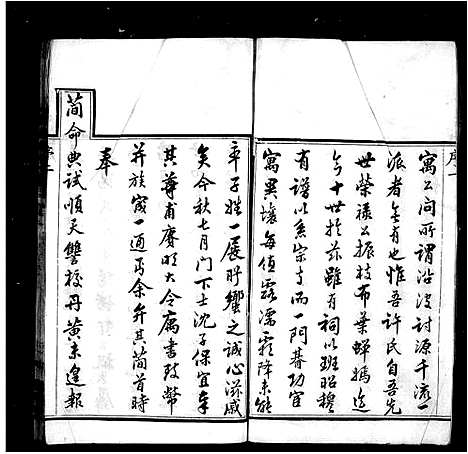 寓公間所謂沿波討源千流一
派者無有也惟吾許氏自吾先
世榮祿公振枝布葉蟬嫣迄
今十世於茲雖有祠以班昭穆
有譜以系宗支而一門羣功官
寓異壤每值露濡霜降未能
率子姓一展肸蠁之誠心滋戚
矣今秋七月門下士沈子保宜奉
其尊甫賡明大令寓書致幣
并族宬一通丐余弁其簡首時
奉
簡命典試順天讐校丹黄未遑報
序一